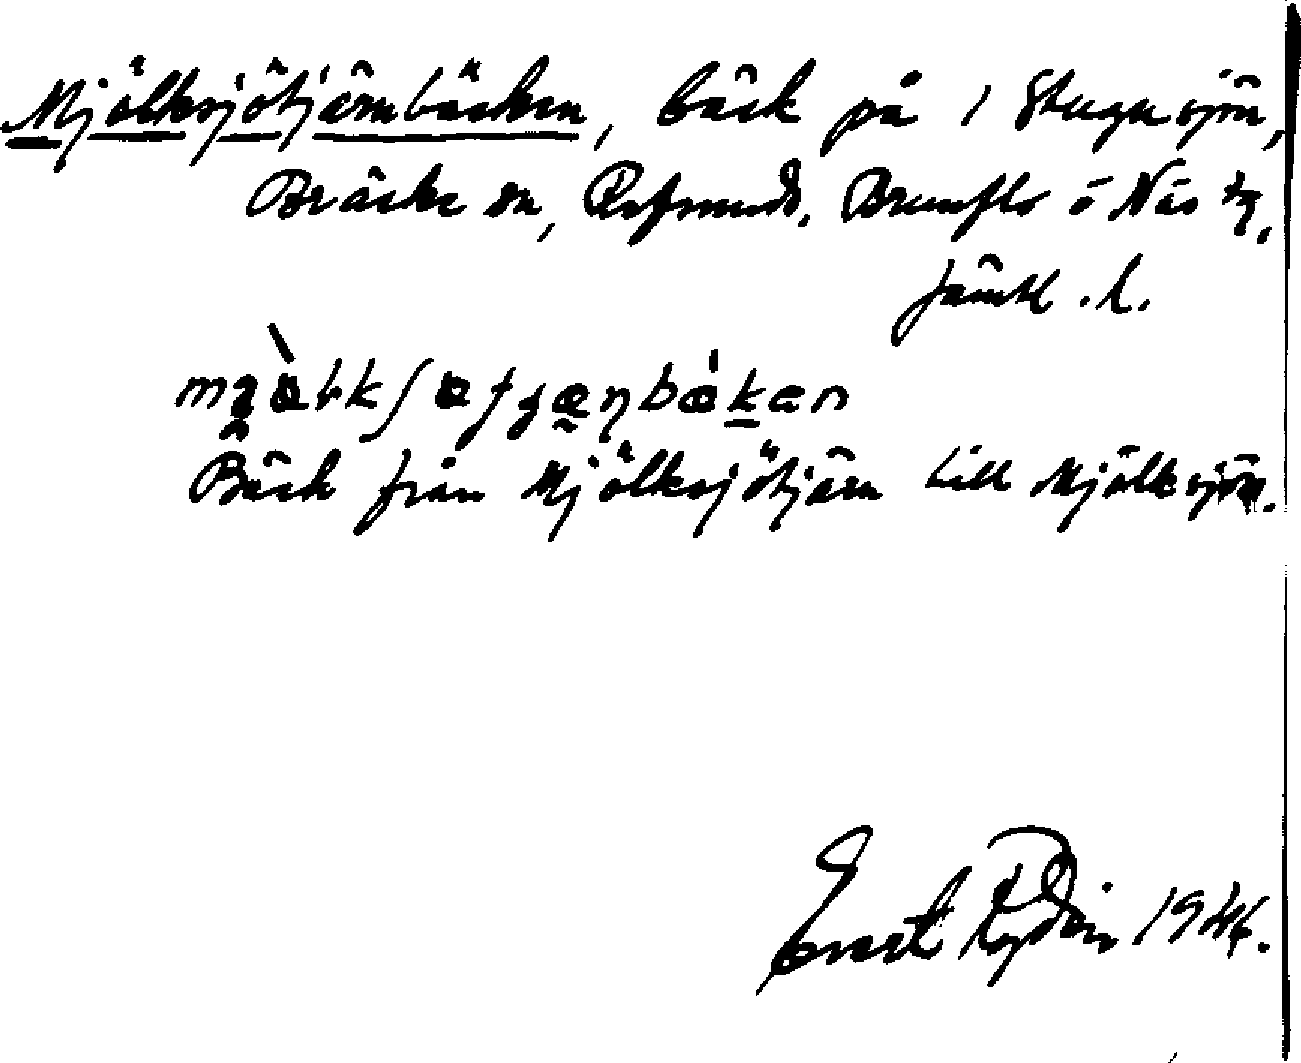 Mjölksjötjärnbäcken, bäck på 1 Stugusjön,
Bräcke sn, Refsunds, Brunflo o Näs tg,
Jämtl. l.
Bäck från Mjölksjötjärn till Mjölksjön.
Ernst Rydén 1946.